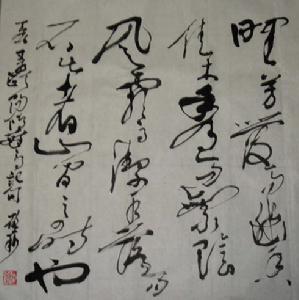 野芳發而幽香
佳木秀而繁陰
風霜高潔水落而
石出者山間之四時也
歐陽修